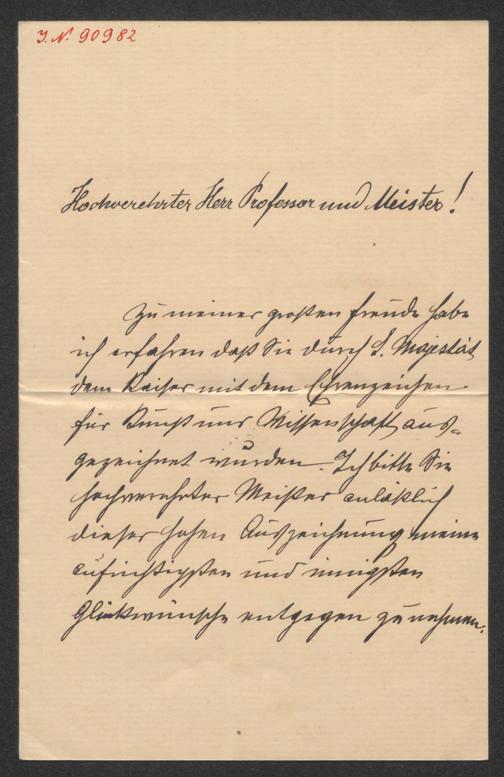 J. N. 90982
Hochverehrter Herr Professor und Meister!
Zu meiner großen Freude habe
ich erfahren daß Sie durch S. Majestät
dem Kaiser mit dem Ehrenzeichen
für Kunst und Wissenschaft aus-
gezeichnet wurden – Ich bitte Sie
hochverehrter Meister anläßlich
dieser hohen Auszeichnung meine
aufrichtigsten und innigsten
Glückwünsche entgegen zu nehmen.